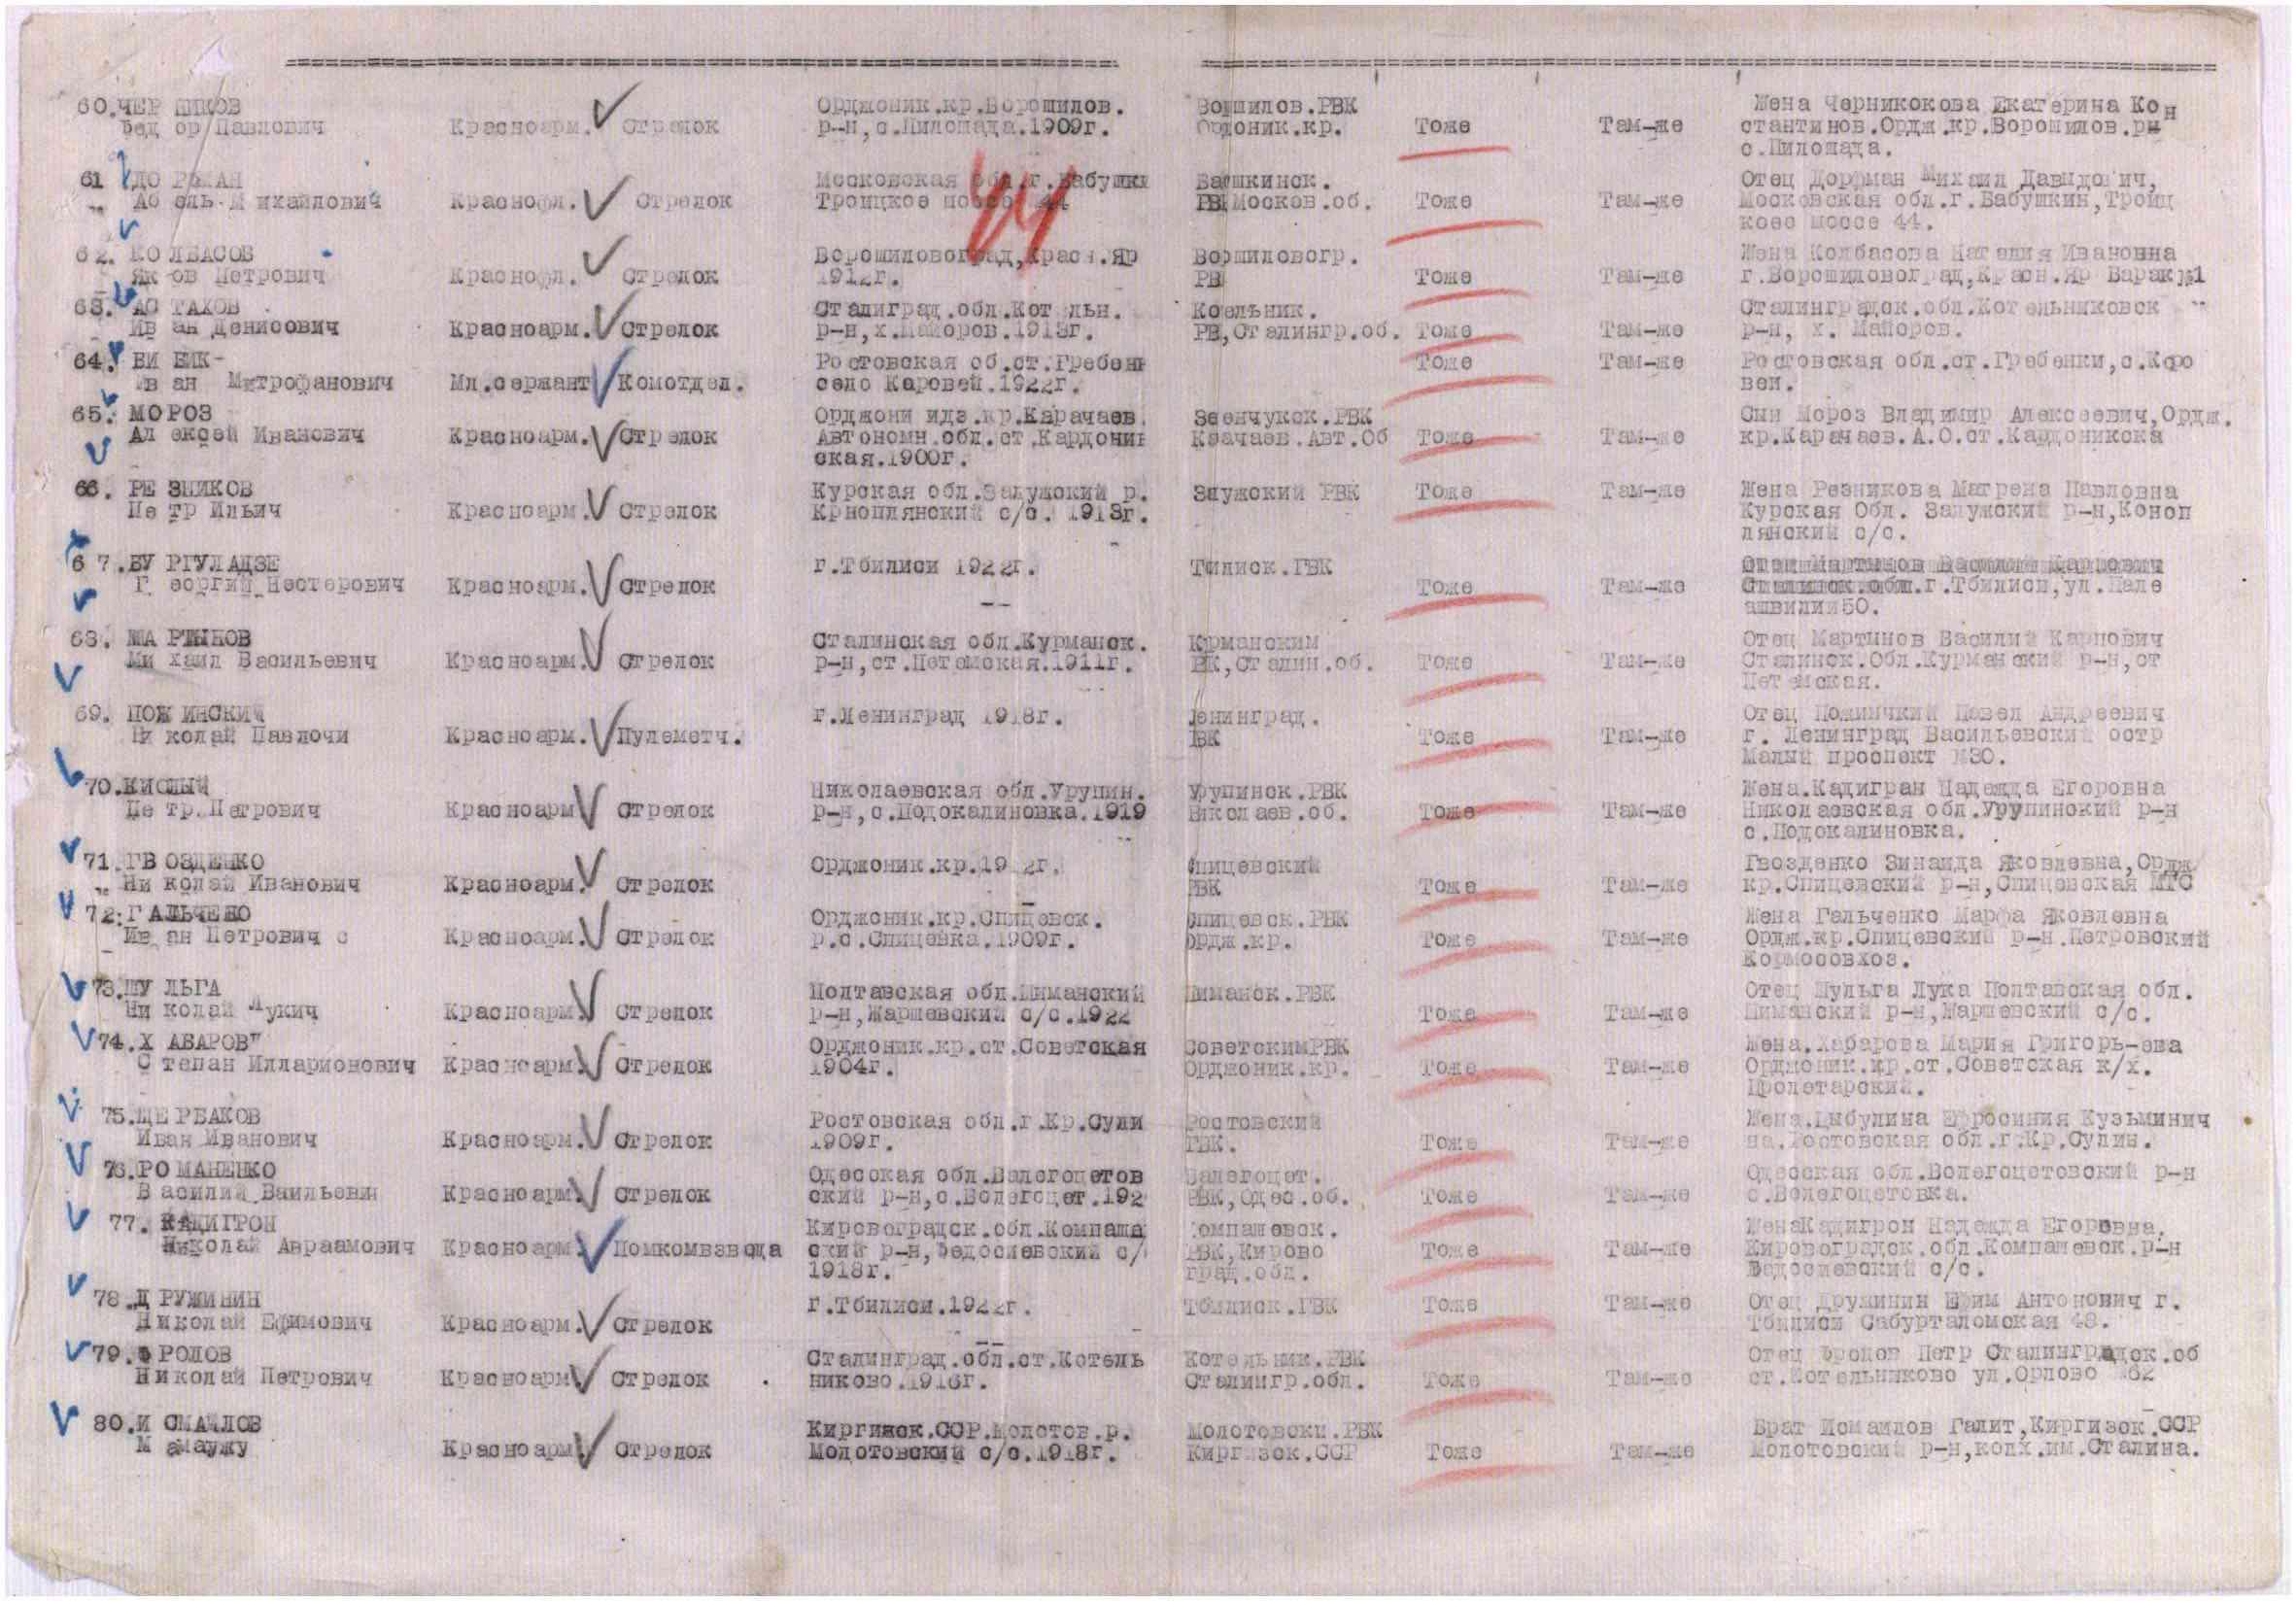 60.ЧЕРНИКОВ Орджоник.кр.Ворошилов. Вошилов.РВК Жена Черникокова Екатерина Кон
Федор Павлович Красноарм. Стрелок р-н,с.Пилопада.1909г. Ордоник.кр. Тоже Там-же стантинов.Ордж.кр.Ворошилов.рн
с.Пилопада.
61 ДОРФМАН Московская обл.г.Бабушки Башкинск. Отец Дорфман Михаил Давидович,
Абель Михайлович Краснофл. Стрелок Троицкое шоссе 44 РВ Москов.об. Тоже Там-же Московская обл.г.Бабушкин,Троиц
коес шоссе 44.
62. КОЛБАСОВ Ворошиловоград,Красн.Яр Воршиловогр. Жена Колбасова Наталия Ивановна
Яков Петрович Краснофл. Стрелок 1912г. РВ Тоже Там-же г.Ворошиловоград,Красн.Яр Барак №1
63. АСТАХОВ Сталиград.обл.Котельн. Коельник. Сталинградск.обл.Котельниковск
Иван Денисович Красноарм. Стрелок р-н,х.Майоров.1913г. РВ,Сталингр.об. Тоже Там-же р-н, х. Майоров.
64. БИБИК- Ростовская об.ст.Гребенн Тоже Там-же Ростовская обл.ст.Гребенки,с.Каро
Иван Митрофанович Мл.сержант Комотдел. село Каровей.1922г. вей.
65. МОРОЗ Орджоникидзе.кр.Карачаев. Зеенчукск.РВК Сын Мороз Владимир Алексеевич,Ордж.
Алексей Иванович Красноарм. Стрелок Автономн.обл.ст.Кардоник Каачаев.Авт.Об Тоже Там-же кр.Карачаев.А.О.ст.Кардоникска
ская.1900г.
66. РЕЗНИКОВ Курская обл.Залужский р. Злужский РВК Тоже Там-же Жена Резникова Матрена Павловна
Петр Ильич Красноарм. Стрелок Крноплянский с/с. 1913г. Курская Обл. Залужский р-н,Коноп
лянский с/с.
67.БУРГУЛАДЗЕ г.Тбилиси 1922г. Тилиск.ГВК
Георгий Нестерович Красноарм. Стрелок Тоже Там-же г.Тбилиси,ул.Пале
ашвилия50.
68. МАРТЫНОВ Сталинская обл.Курманск. Крманским Отец Мартинов Василий Карпович
Михаил Васильевич Красноарм. Стрелок р-н,ст.Петемская.1911г. ВК,Сталин.об. Тоже Там-же Сталинск.Обл.Курманский р-н,ст
Петемская.
69. ПОЖИНСКИЙ г.Ленинград 1918г. Ленинград. Отец Пожинчкий Повел Андреевич
Николай Павлочи Красноарм. Пулеметч. ВК Тоже Там-же г. Ленинград Васильевский остр
Малый проспект №30.
70.КИСЛЫЙ Николаевская обл.Урупин. Урупинск.РВК Жена.Кадигран Надежда Егоровна
Петр.Петрович Красноарм Стрелок р-н,с.Подокалиновка.1919 Николаев.об. Тоже Там-же Николаевская обл.Урупинский р-н
с.Подокалиновка.
71.ГВОЗДЕНКО Орджоник.кр.1912г. Спицевский Гвозденко Зинаида Яковлевна,Ордж
Николай Иванович Красноарм. Стрелок РВК Тоже Там-же кр.Спицевский р-н,Спицевская МТС
72.ГАЛЬЧЕНО Орджоник.кр.Спицевск. Спицевск.РВК Жена Гальченко Марфа Яковлевна
Иван Петрович с Красноарм. Стрелок р.с.Спицевка.1909г. Ордж.кр. Тоже Там-же Ордж.кр.Спицевский р-н.Петровский
Кормосовхоз.
73.ШУЛЬГА Полтавская обл.Шиманский Шиманск.РВК Отец Шульга Лука Полтавская обл.
Николай Лукич Красноарм. Стрелок р-н,Жаршевский с/с.1922 Тоже Там-же Шиманский р-н,Жаршевский с/с.
74.ХАБАРОВ Орджоник.кр.ст.Советская СоветскимРВК Жена.Хабарова Мария Григорь-ева
Степан Илларионович Красноарм. Стрелок 1904г. Орджоник.кр. Тоже Там-же Орджоник.кр.ст.Советская к/х.
Пролетарский.
75.ЩЕРБАКОВ Ростовская обл.г.Кр.Сули Ростовский Жена.Цыбулина Ефросиния Кузьминич
Иван Иванович Красноарм. Стрелок 1909г. ГВК. Тоже Там-же на.Ростовская обл.г.Кр.Сулин.
76.РОМАНЕНКО Одесская обл.Валегоцетов Валегоцет. Одесская обл.Волегоцетовский р-н
Василий Ваильевин Красноарм. Стрелок ский р-н,с.Волегоцет.192 РВК,Одес.об. Тоже Там-же с.Волегоцетовка.
77. КАДИГРОН Кировоградск.обл.Компаша Компашевск. ЖенаКадигрон Надежда Егоровна.
Николай Авраамович Красноарм. Помкомвзвода ский р-н,Федосиевский с/ РВК,Кирово Тоже Там-же Кировоградск.обл.Компашевск.р-н
1918г. град.обл. Федосиевский с/с.
78.ДРУЖИНИН г.Тбилиси.1922г. Тбилиск.ГВК Тоже Там-же Отец Дружинин Ефим Антонович г.
Николай Ефимович Красноарм. Стрелок Тбилиси Сабурталомская 48.
79.ФРОЛОВ Сталинград.обл.ст.Котель Котельник.РВК Отец Фролов Петр Сталинградск.об
Николай Петрович Красноарм Стрелок никово.1916г. Сталингр.обл. Тоже Там-же ст.Котельниково ул.Орлово №62
80.ИСМАИЛОВ Киргизск.ССР.Молотов.р. Молотовски.РВК Брат Исмаилов Галит,Киргизск.ССР
Мамаужу Красноарм. Стрелок Молотовский с/с.1918г. Киргизск.ССР Тоже Там-же Молотовский р-н,колх.им.Сталина.